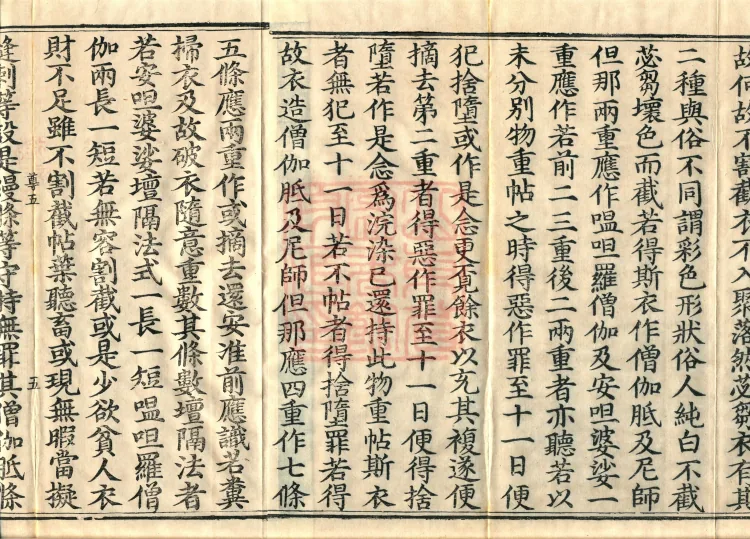 故何故不割截衣不入聚落然苾芻衣有其
二種與俗不同謂彩色形狀俗人純白不截
苾芻壞色而截若得斯衣作僧伽胝及尼師
但那兩重應作嗢呾羅僧伽及安呾婆娑一
重應作若前二三重後二兩重者亦聽若以
未分別物重帖之時得惡作罪至十一日便
犯捨墮或作是念更覓餘衣以充其複遂便
摘去第二重者得惡作罪至十一日便得捨
墮若作是念爲浣染已還持此物重帖斯衣
者無犯至十一日若不帖者得捨墮罪若得
故衣造僧伽胝及尼師但那應四重作七條
五條應兩重作或摘去還安准前應識若糞
掃衣及故破衣隨意重數其條數壇隔法者
若安呾婆娑壇隔法式一長一短嗢呾羅僧
伽兩長一短若無容割截或是少欲貧人衣
財不足雖不割截帖葉聽畜或現無暇當擬
尊五
五
縫刺等設是縵條等守持無罪其僧伽胝條